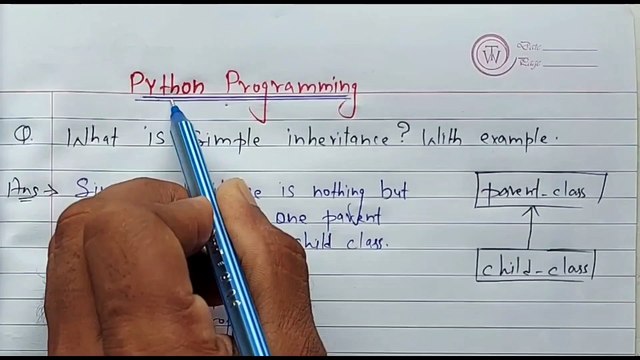 Date
Page
Python Programming
Q. What is Simple inheritance? With example.
Ans → is nothing but
one parent
child class.
parent_class
child_class